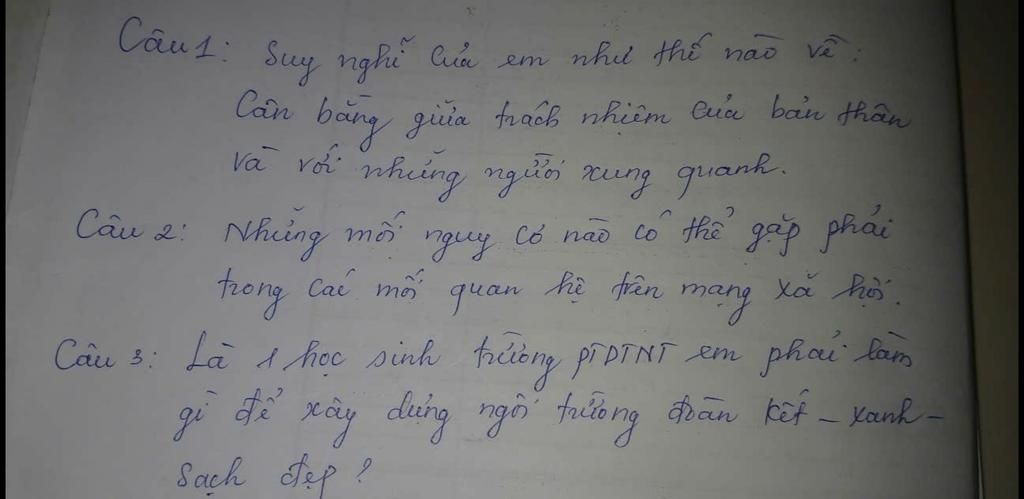 Câu 1: Suy nghĩ của em như thế nào về:
Cân bằng giữa trách nhiệm của bản thân
và với những người xung quanh.
Câu 2: Những mối nguy cơ nào có thể gặp phải
trong các mối quan hệ trên mạng xã hội.
Câu 3: Là 1 học sinh trường PTDTNT em phải làm
gì để xây dựng ngôi trường đoàn kết - xanh -
sạch đẹp?